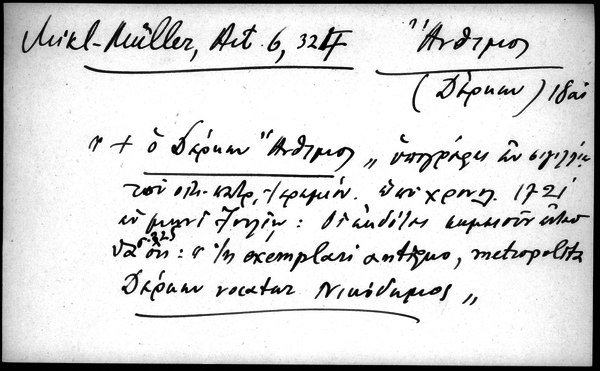 Mikl-Müller, Act. 6, 324 Ἄνθιμος
(Δέρκων) 18αι
" + ὁ Δέρκων Ἄνθιμος „ ὑπογράφει ἐν σιγιλλίῳ
τοῦ οἰκ. πατρ. Ἱερεμίου. ὑπὸ χρονολ. 1721
ἐν μηνὶ Ἰουλίῳ : Οἱ ἐκδόται σημειοῦν
σ. 325 ὅτι : " In exemplari antiquo, metropolita
Δέρκων vocatur Νικόδημος „